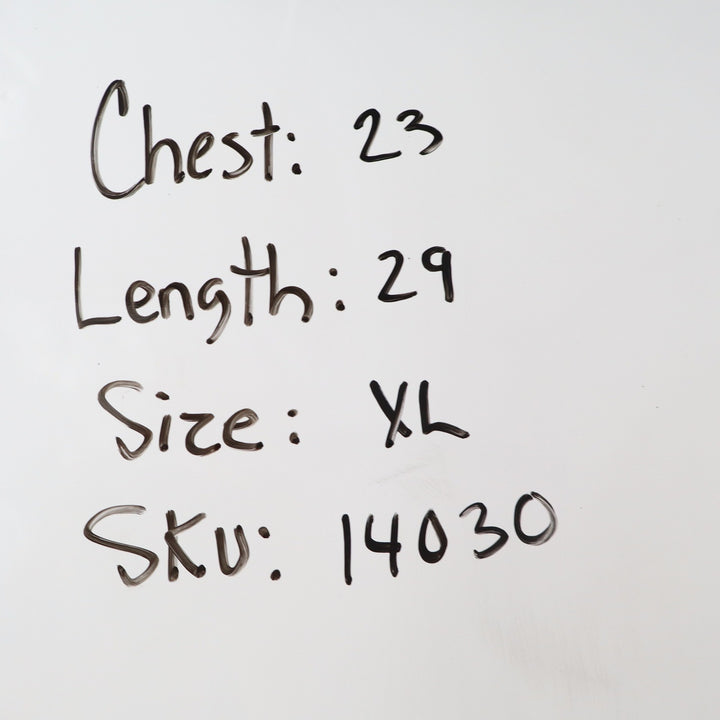 Chest: 23
Length: 29
Size: XL
SKU: 14030